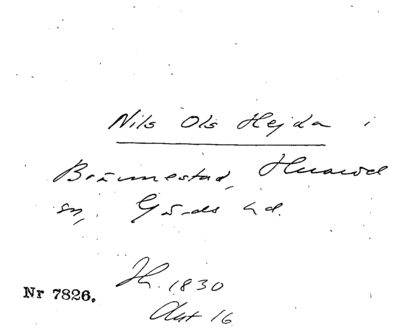 Nils Ols Hejda i
Brünnestad, Huarod
sn, Gärds hd.
Nr 7826.
Th. 1830
Okt 16